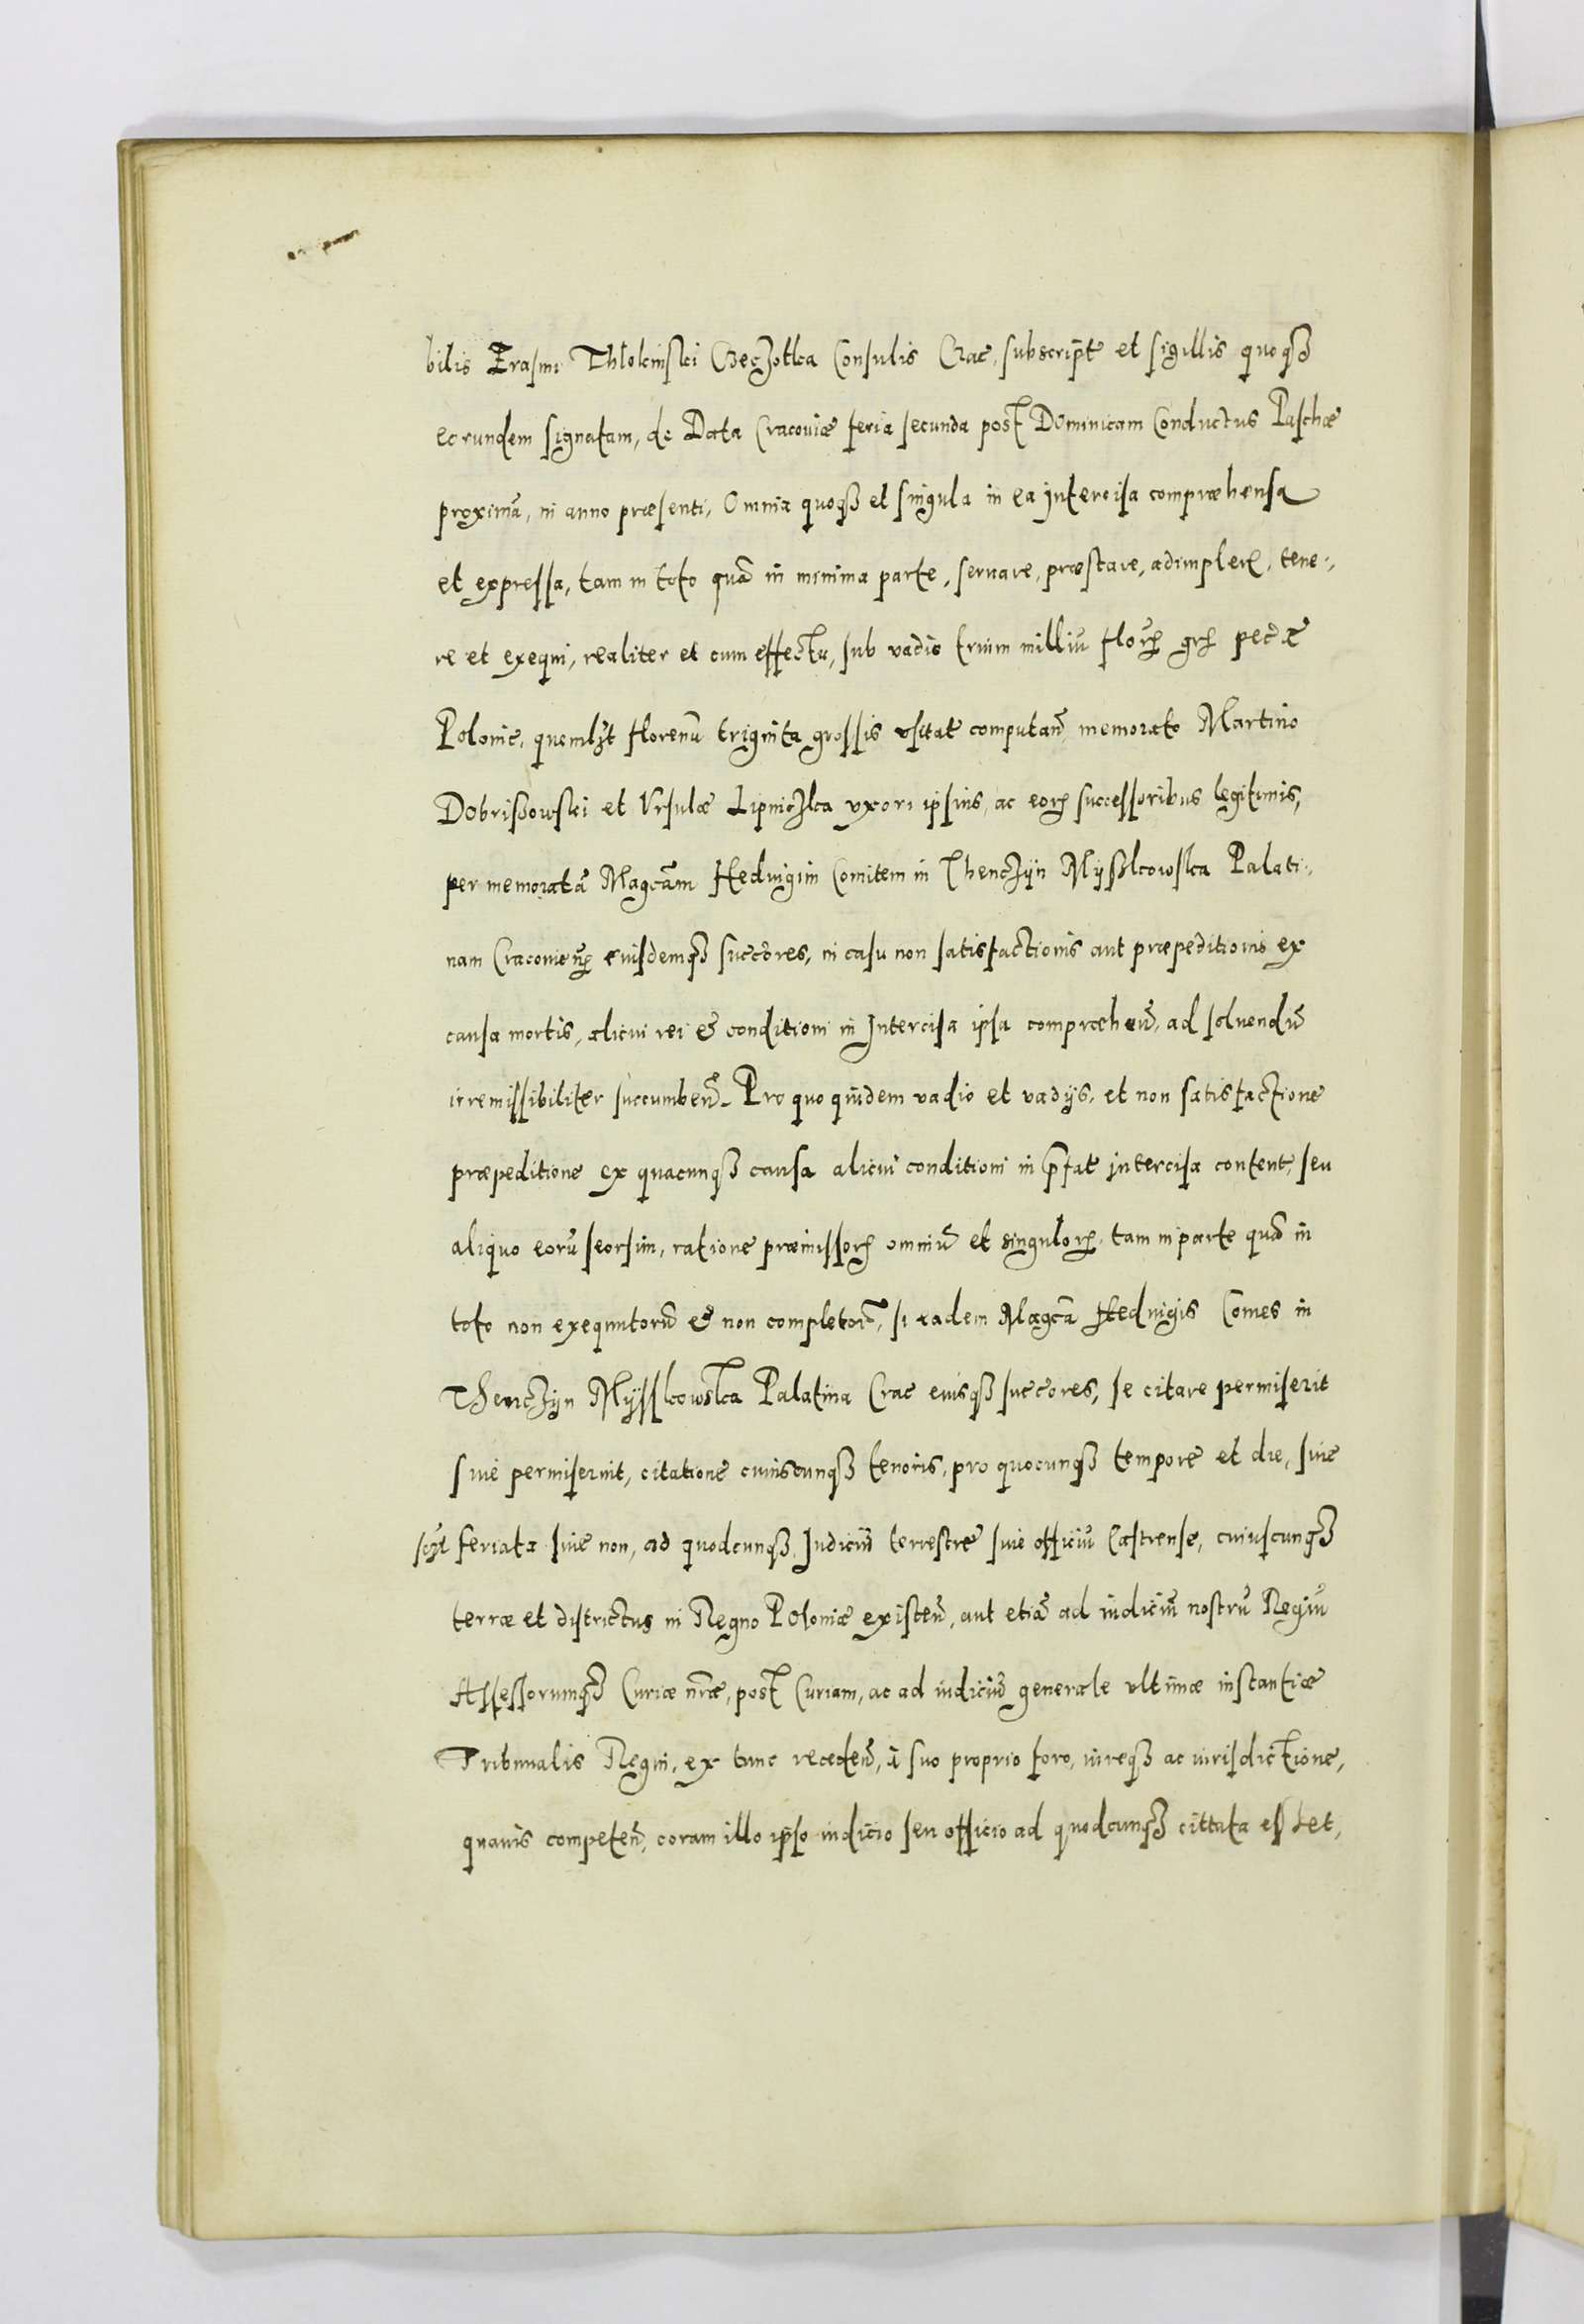 bilis Erasmi Thlokinski Czeczotka Consulis Crac, subscript̄ et sigillis quoqȝ
eorundem signatam, de Data Cracoviæ feria secunda post Dominicam Conductus Paschæ
proximā, in anno præsenti, Omnia quoqȝ et singula in ea Intercisa compræhensa
et expressa, tam in toto quā in minima parte, servare, præstare, adimplere, tene:,
re et exequi, realiter et cum effectu, sub vadio trium milliū florꝝ grꝝ pec̄æ
Polonic, quemlꝫt florenū triginta grossis usitat computan̄, memorato Martino
Dobrißowski et Ursulæ Lipniczka uxori ipsius, ac eorꝝ successoribus legitimis,
per memoratā Magcām Hedvigim Comitem in Thenczÿn Mÿßkowska Palati:,
nam Cracovien̄, eiusdemqȝ succōres, in casu non satisfactionis aut præpeditionis ex
causa mortis, alicui rei et conditioni in Intercisa ipsa compræhen̄, ad solvendū
irremissibiliter succumben̄. Pro quo quidem vadio et vadijs, et non satisfactione
præpeditione ex quacunqȝ causa alicui conditioni in p̄fat intercisa content, seu
aliquo eorū seorsim, ratione præmissorꝝ omniū et singulorꝝ, tam in parte quā in
toto non exequutorū et non completorū, si eadem Magcā Hedvigis Comes in
Thenczÿn Mÿsskowska Palatina Crac eiusqȝ succōres, se citare permiserit
sive permiserint, citatione cuiuscunqȝ tenoris, pro quocunqȝ tempore et die, sive
sczt feriata sive non, ad quodcunqȝ Iudiciū terrestre sive officiū Castrense, cuiuscunqȝ
terræ et districtus in Regno Poloniæ existen̄, aut etiā ad iudiciū nostrū Regiū
Assessorumqȝ Curiæ nr̄æ, post Curiam, ac ad iudiciū generale ultimæ instantiæ
Tribunalis Regni, ex tunc receden̄, à suo proprio foro, iureqȝ ac iurisdictione,
quavis competen̄, coram illo ipso iudicio seu officio ad quodcunqȝ cittata esset,